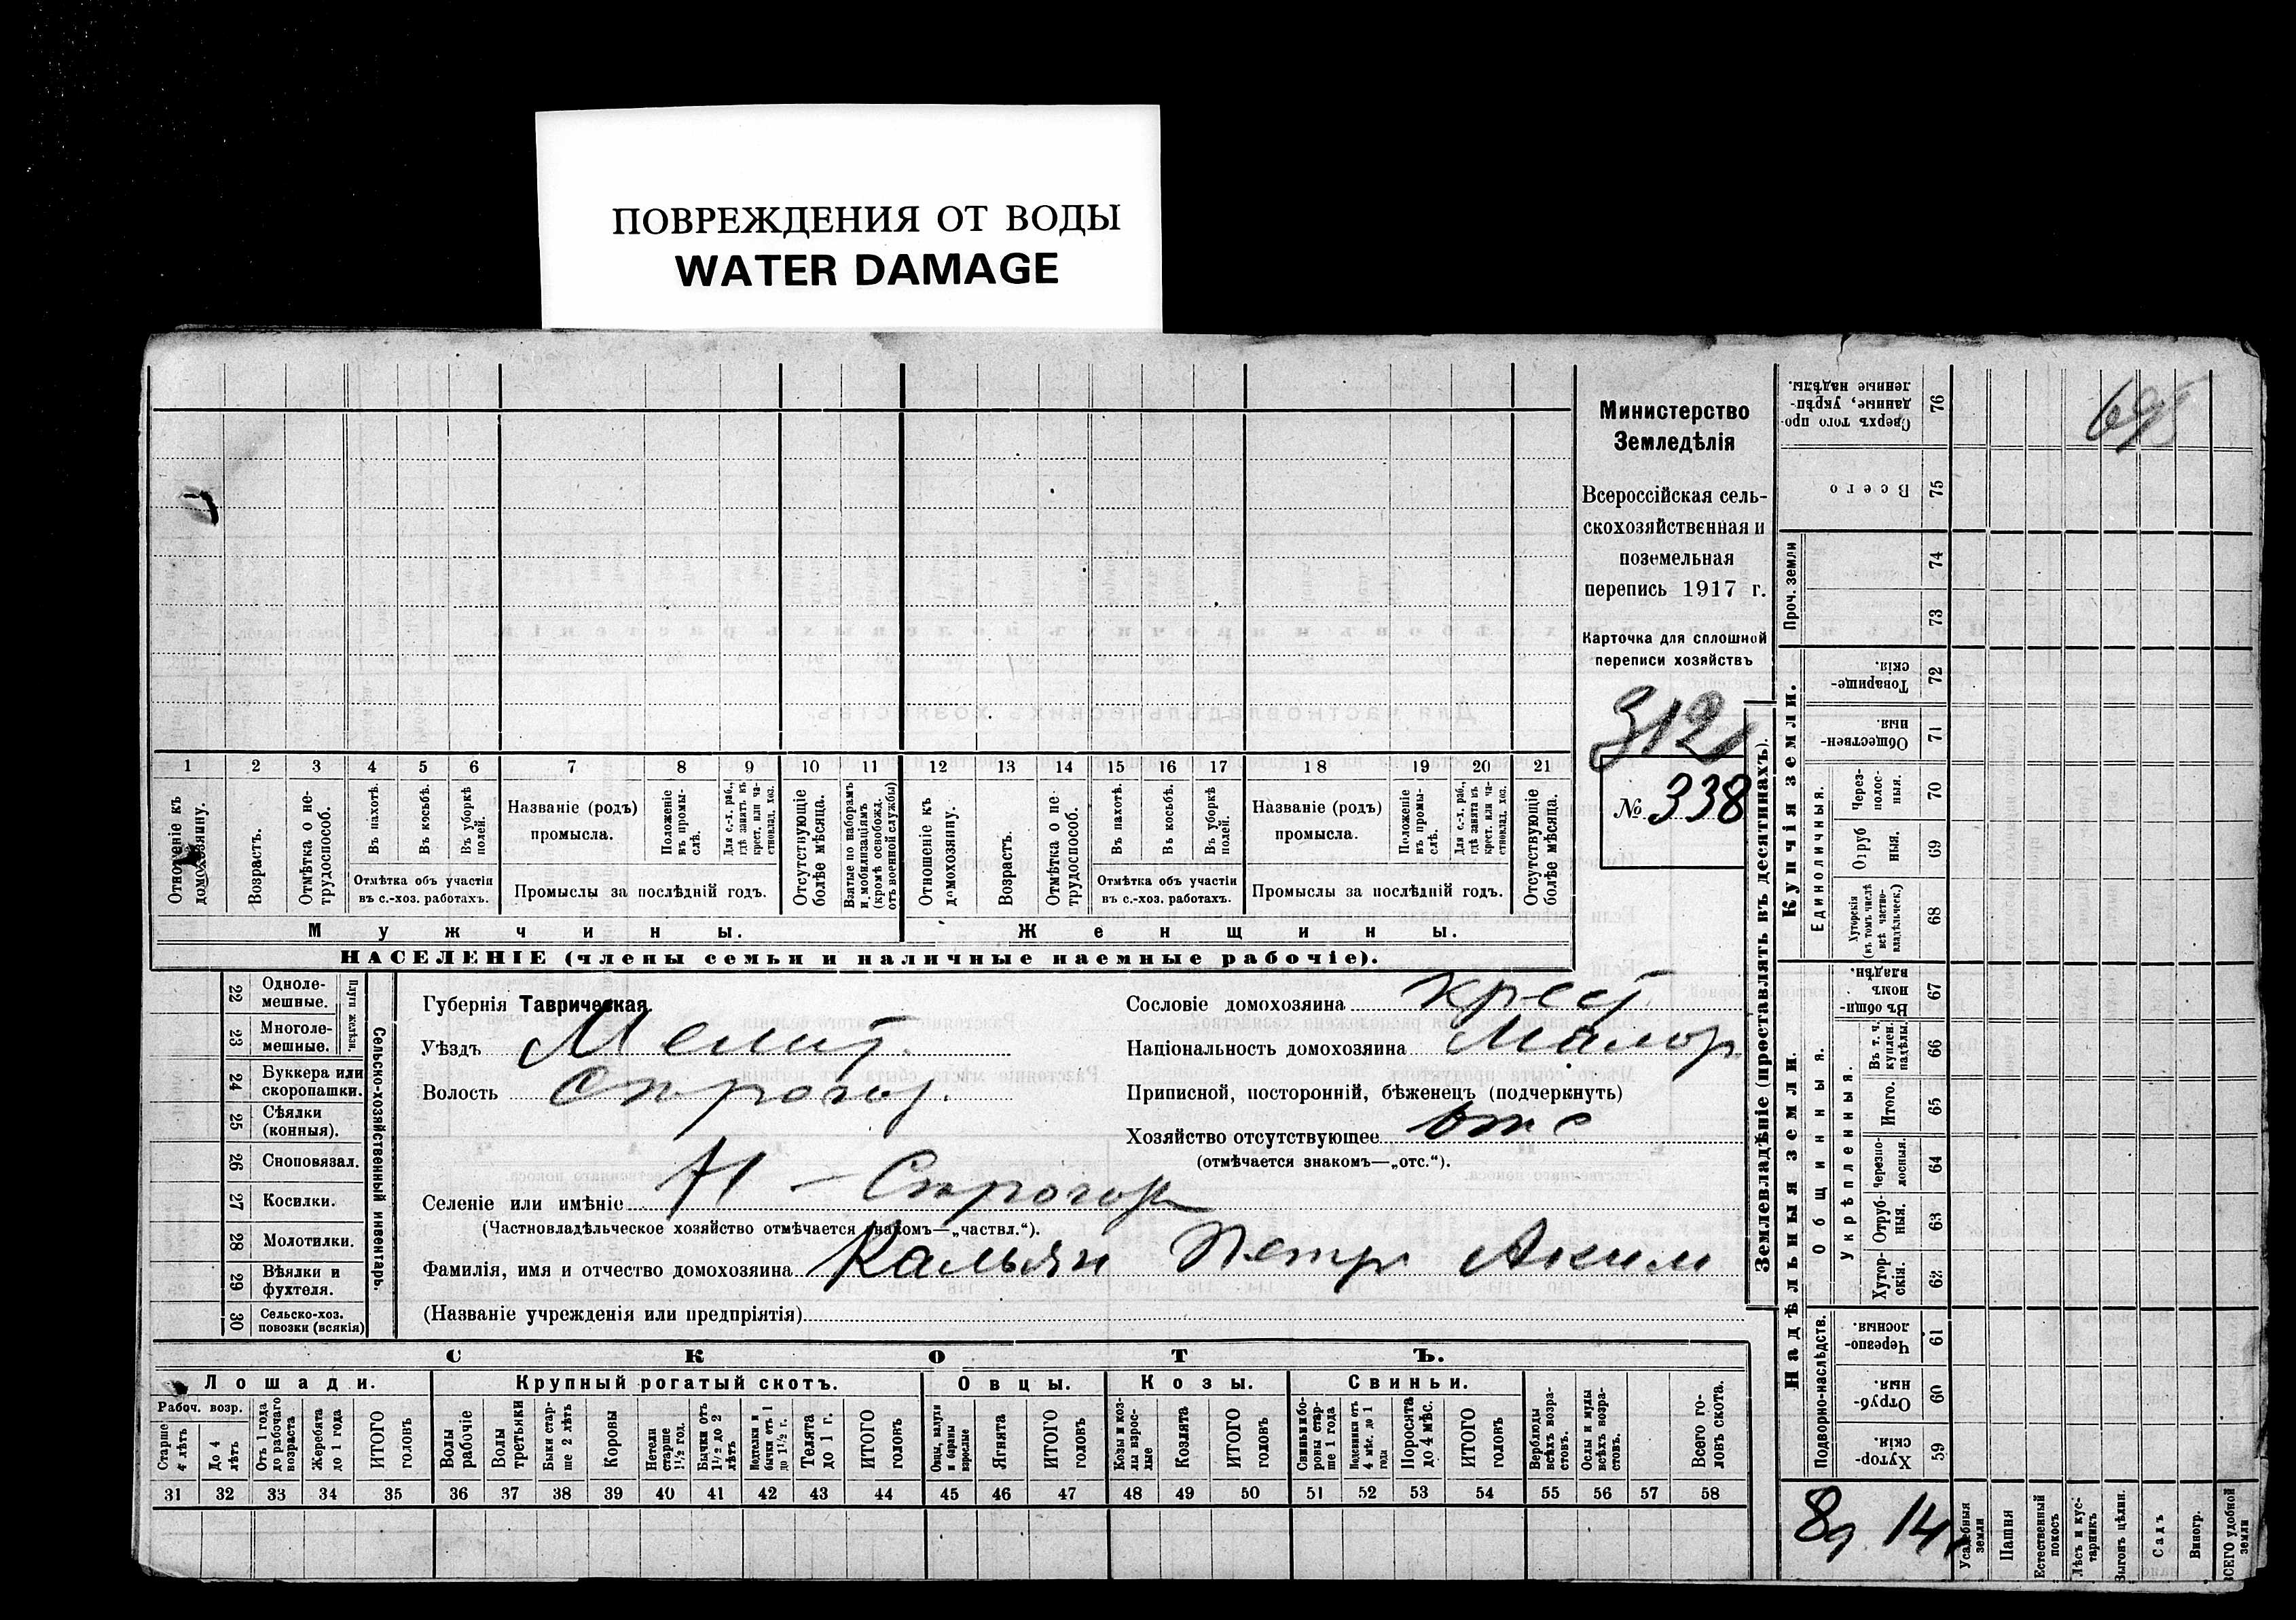 ПОВРЕЖДЕНИЯ ОТ ВОДЫ
WATER DAMAGE
Министерство
Земледѣлія
Всероссійская сель-
скохозяйственная и
поземельная
перепись 1917 г.
Карточка для сплошной
переписи хозяйствъ
312
№ 338
1 2 3 4 5 6 7 8 9 10 11 12 13 14 15 16 17 18 19 20 21
Отношеніе къ домохозяину.
Возрастъ.
Отмѣтка о не-трудоспособ.
Въ пахотѣ.
Въ косьбѣ.
Въ уборкѣ полей.
Отмѣтка объ участіи
въ с.-хоз. работахъ.
Названіе (родъ)
промысла.
Положеніе въ промы-слѣ.
Для с.-х. раб., гдѣ занятъ въ крест. или ча-стновлад. хоз.
Промыслы за послѣдній годъ.
Отсутствующіе болѣе мѣсяца.
Взятые по наборамъ и мобилизаціямъ (кромѣ освобожд. отъ военной службы)
Отношеніе къ домохозяину.
Возрастъ.
Отмѣтка о не трудоспособ.
Въ пахотѣ.
Въ косьбѣ.
Въ уборкѣ полей.
Отмѣтка объ участіи
въ с.-хоз. работахъ.
Названіе (родъ)
промысла.
Положеніе въ промы-слѣ.
Для с.-х. раб., гдѣ занята въ крест. или ча-стновлад. хоз.
Промыслы за послѣдній годъ.
Отсутствующіе болѣе мѣсяца.
Мужчины.
Женщины.
НАСЕЛЕНІЕ (члены семьи и наличные наемные рабочіе).
22 Одноле-мешные.
23 Многоле-мешные.
Плуги желѣзн.
24 Буккера или скоропашки.
25 Сѣялки (конныя).
26 Сноповязал.
27 Косилки.
28 Молотилки.
29 Вѣялки и фухтеля.
30 Сельско-хоз. повозки (всякія)
Сельско-хозяйственный инвентарь.
Губернія Таврическая.
Уѣздъ Мелит.
Волость Строгоз.
Селеніе или имѣніе Н-Строгоз
(Частновладѣльческое хозяйство отмѣчается знакомъ—„частвл.“).
Фамилія, имя и отчество домохозяина Кальян Петр Аким
(Названіе учрежденія или предпріятія)
Сословіе домохозяина крест.
Національность домохозяина Малор
Приписной, посторонній, бѣженецъ (подчеркнуть)
Хозяйство отсутствующее отс
(отмѣчается знакомъ—„отс.“).
СКОТЪ.
Лошади.
Крупный рогатый скотъ.
Овцы.
Козы.
Свиньи.
Рабоч. возр.
Старше 4 лѣтъ
До 4 лѣтъ
Отъ 1 года до рабочаго возраста
Жеребята до 1 года
ИТОГО головъ
Волы рабочіе
Волы третьяки
Быки стар-ше 2 лѣтъ
Коровы
Нетели старше 1½ год.
Бычки отъ 1½ до 2 лѣтъ
Подтелки и бычки отъ 1 до 1½ г.
Телята до 1 г.
ИТОГО головъ
Овцы, валухи и бараны взрослые
Ягнята
ИТОГО головъ
Козы и коз-лы взрос-лые
Козлята
ИТОГО головъ
Свиньи и бо-ровы стар-ше 1 года
Подсвинки отъ 4 мѣс. до 1 года
Поросята до 4 мѣс.
ИТОГО головъ
Верблюды всѣхъ возра-стовъ.
Ослы и мулы всѣхъ возра-стовъ.
Всего го-ловъ скота.
31 32 33 34 35 36 37 38 39 40 41 42 43 44 45 46 47 48 49 50 51 52 53 54 55 56 57 58
Землевладѣніе (проставлять въ десятинахъ).
Купчія земли.
Надѣльныя земли.
Сверхъ того про-данные, укрѣп-ленные надѣлы. 76
Всего 75
Проч. земли
74
73
Товарище-скія. 72
Обществен-ныя. 71
Единоличныя.
Через-полос-ныя. 70
Отруб ныя. 69
Хуторскія (въ томъ числѣ всѣ частно-владѣльческ.) 68
Въ общи-номъ владѣн. 67
Общинныя.
Укрѣпленныя.
Въ т. ч. куплен. надѣлы. 66
Итого. 65
Черезпо-лосныя. 64
Отруб-ныя. 63
Хутор-скія. 62
Подворно-наслѣдств.
Черезпо-лосныя. 61
Отруб-ныя. 60
Хутор-скія. 59
Усадебныя земли
Пашня
Естественный покосъ
Лѣсъ и кус-тарникъ
Выгонъ цѣлин.
Садъ
Виногр.
ВСЕГО удобной земли